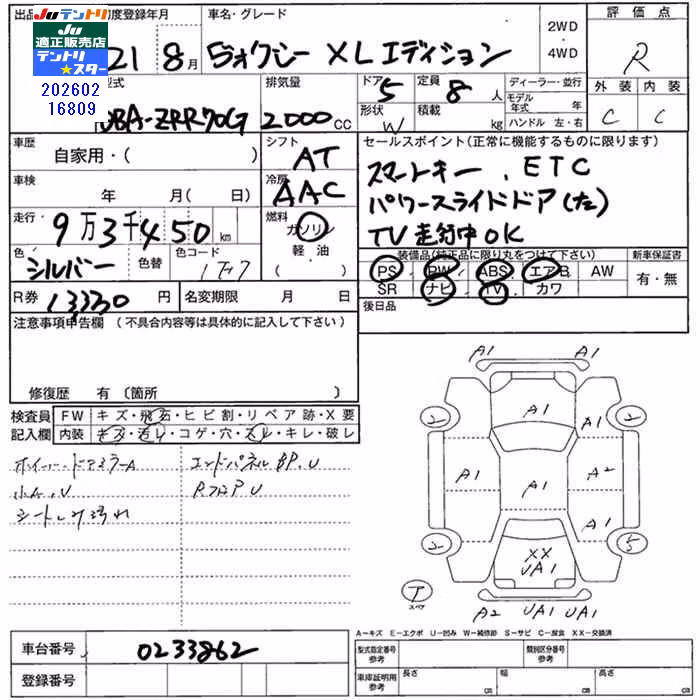 出品
Juテントリ
Ju
適正販売店
テントリ★スター
202602
16809
初度登録年月
21 8月
車名・グレード
ヴォクシー XLエディション
2WD
・
4WD
評価点
R
外装 内装
C C
型式
DBA-ZRR70G
排気量
2000 CC
ドア 5
定員 8 人
形状 W
積載 kg
ディーラー・並行
モデル年式 年
ハンドル 左・右
車歴
自家用・( )
シフト
AT
車検
年 月( 日)
冷房
AAC
走行
9万3千450 km
燃料
ガソリン
軽・油
( )
色
シルバー
色替
色コード
1F7
R券 13330 円
名変期限 月 日
セールスポイント(正常に機能するものに限ります)
スマートキー、ETC
パワースライドドア(左)
TV走行中OK
装備品(純正品に限り丸をつけて下さい)
PS PW ABS エアB AW
SR ナビ TV カワ
新車保証書
有・無
後日品
注意事項申告欄 (不具合内容等は具体的に記入して下さい)
修復歴 有〔箇所 〕
検査員記入欄
FW キズ・飛石・ヒビ割・リペア跡・X要
内装 キズ・汚レ・コゲ・穴・スレ・キレ・破レ
ホイール・ドアミラーA
小A、U
シートシミ汚れ
エンドパネルBP、U
RフロアU
A1 A1
A1
2 2
A1 A2
A1
A1
2 5
XX
UA1
ア
スペア
A2 UA1 UA1
A-キズ E-エクボ U-凹み W-補修跡 S-サビ C-腐食 XX-交換済
車台番号 0233862
登録番号
型式指定番号
参考
類別区分番号
参考
車庫証明用
参考
長さ cm
幅 cm
高さ cm